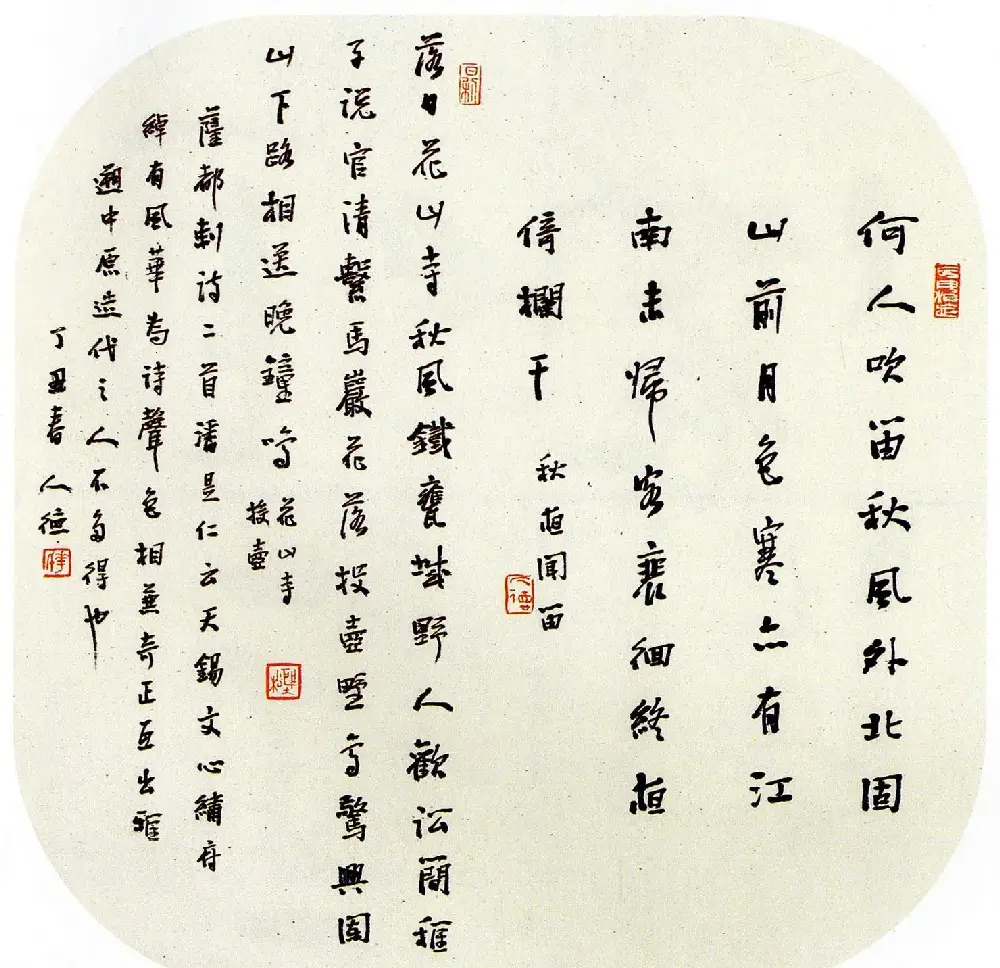 何人吹笛秋風外北固
山前月色寒亦有江
南未歸客裴徊終夜
倚欄干 秋夜聞笛
落日花山寺秋風鐵甕城野人歡訟簡稚
子說官清繫馬巖花落投壺野鳥驚興闌
山下路相送晚鐘鳴 花山寺
投壺
薩都剌詩二首潘是仁云天錫文心繡府
綽有風華為詩聲色相兼奇正互出雅
中原代之人不多得也
丁丑春人德